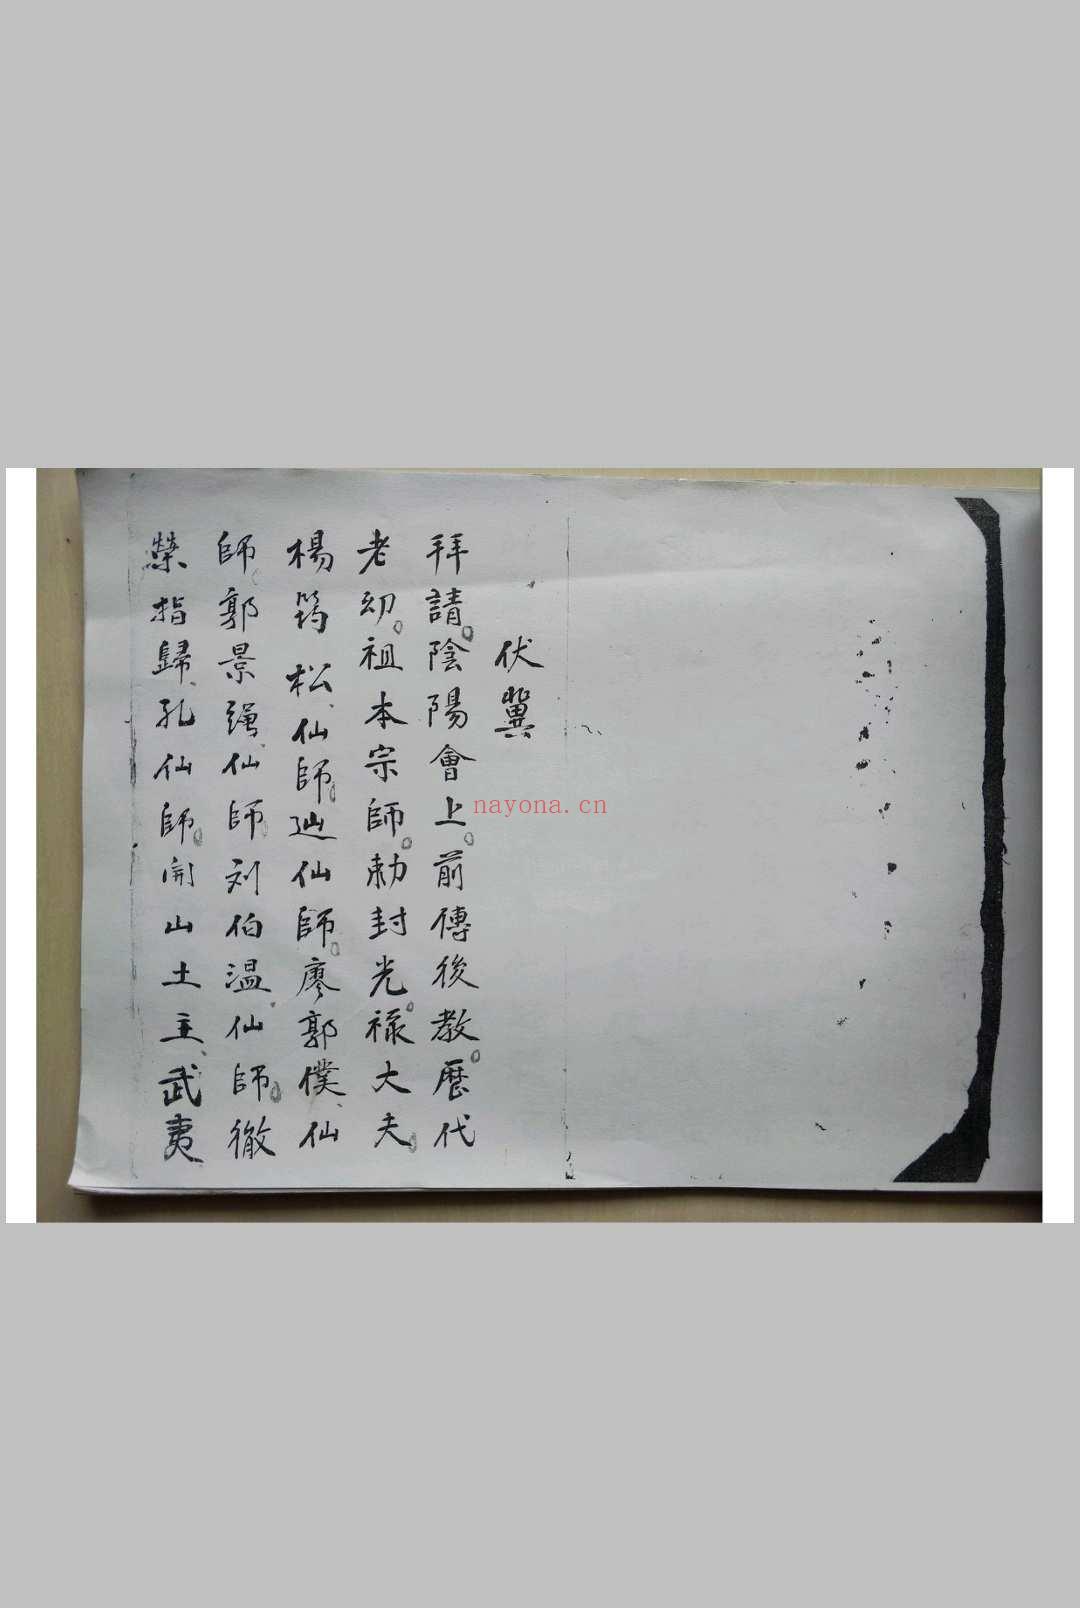 伏冀
拜請。陰陽會上。前傳後教。歷代
老幼。祖本宗師。勅封光祿大夫。
楊筠松仙師。廵仙師。廖郭僕仙
師。郭景繩仙師。刘伯温仙師。徹
榮指歸孔仙師。開山土主武夷
nayona.cn